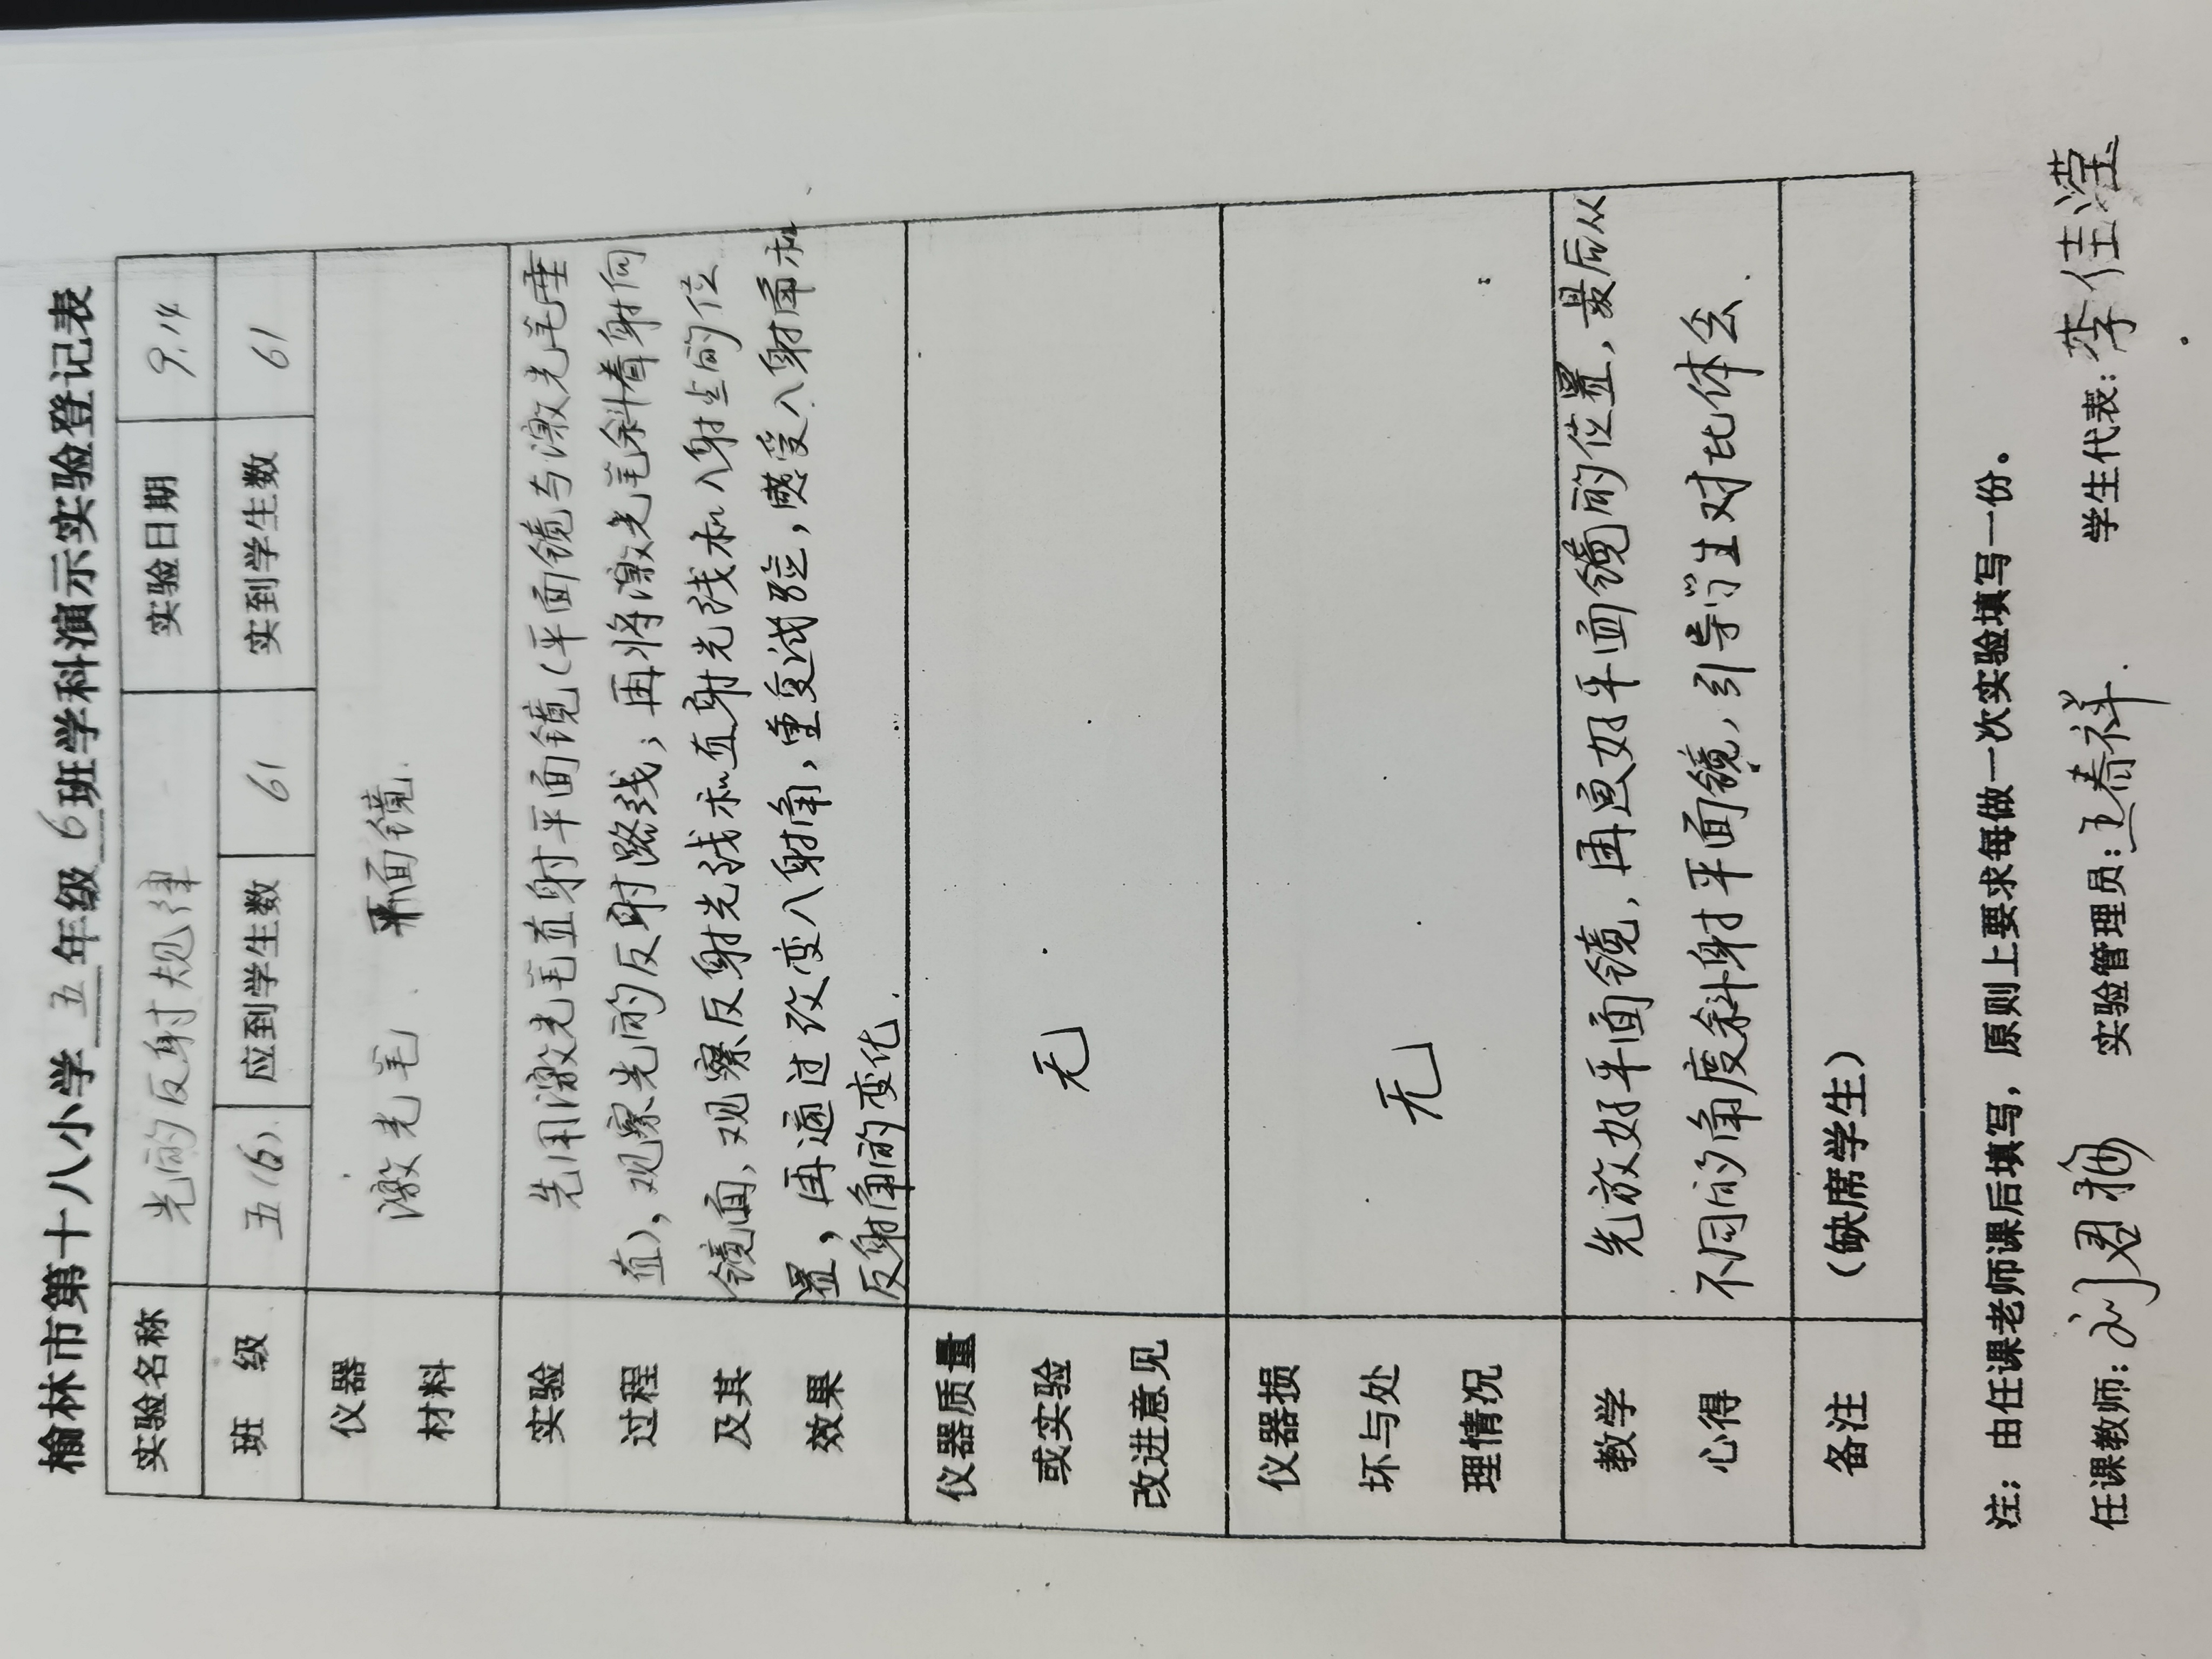 榆林市第十八小学 五 年级 6 班学科演示实验登记表
实验名称 光的反射规律 实验日期 9.14
班 级 五(6) 应到学生数 61 实到学生数 61
仪器
材料
激光笔、平面镜.
实验
过程
及其
效果
先用激光笔直射平面镜(平面镜与激光笔垂
直),观察光的反射路线;再将激光笔斜着射向
镜面,观察反射光线和直射光线和入射点的位
置,再通过改变入射角,重复试验,感受入射角和
反射角的变化.
仪器质量
或实验
改进意见
无
仪器损
坏与处
理情况
无
教学
心得
先放好平面镜,再画好平面镜的位置,最后从
不同的角度斜射平面镜,引导学生对比体会.
备注 (缺席学生)
注:由任课老师课后填写,原则上要求每做一次实验填写一份。
任课教师:刘君梅 实验管理员:王春祥. 学生代表:李佳滢